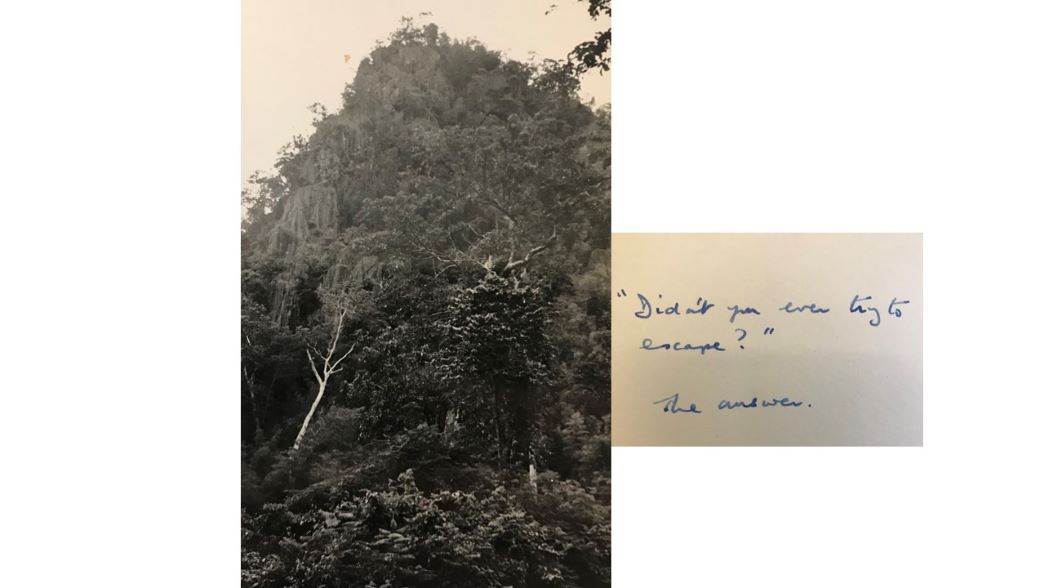 "Didn't you ever try to
escape?"
The answer.